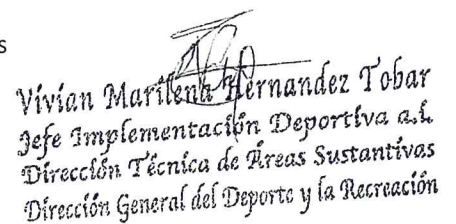 s
Vivian Marilena Hernandez Tobar
Jefe Implementación Deportiva a.i.
Dirección Técnica de Áreas Sustantivas
Dirección General del Deporte y la Recreación